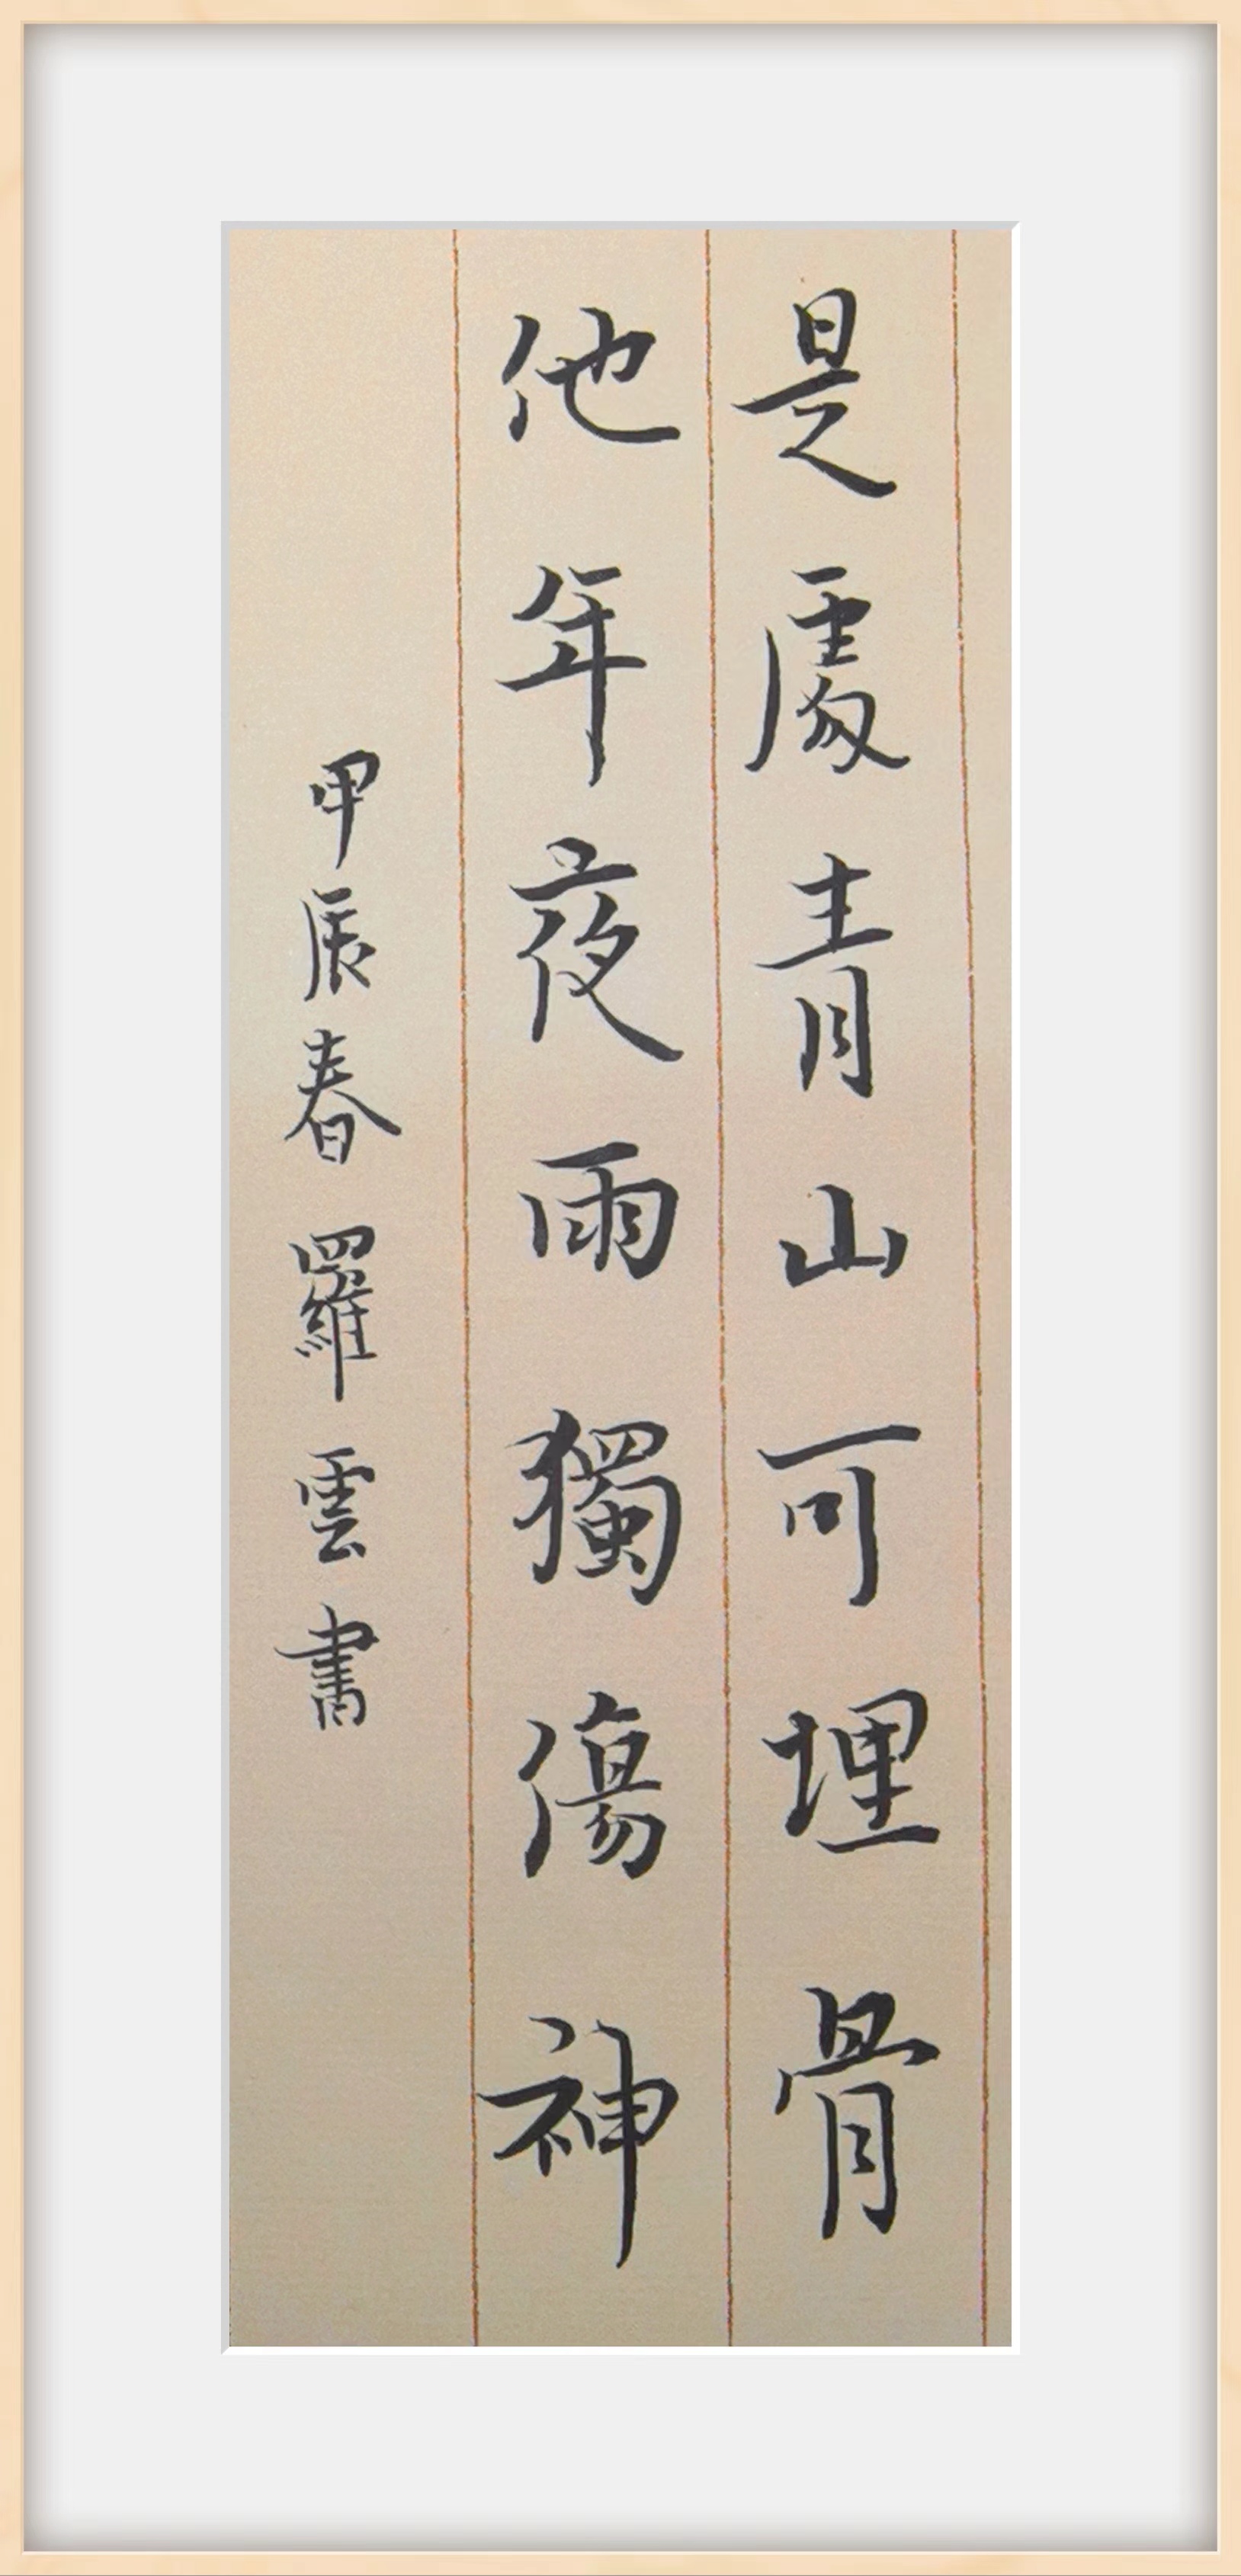 是處青山可埋骨
他年夜雨獨傷神
甲辰春羅雲書